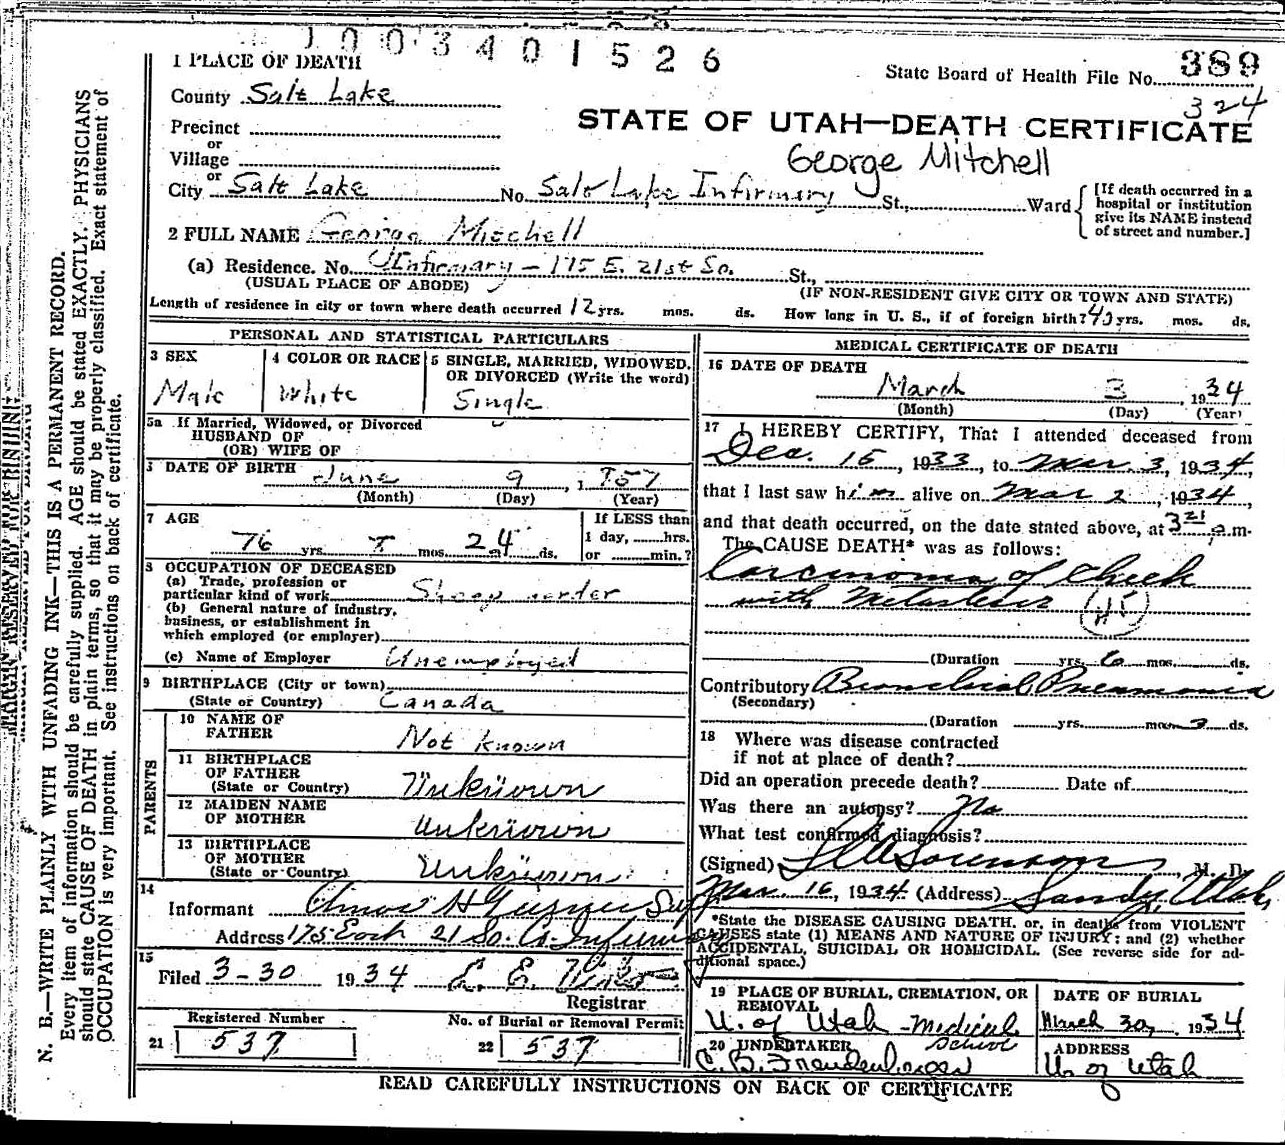 1003401526
1 PLACE OF DEATH
State Board of Health File No. 389
324
County Salt Lake
STATE OF UTAH—DEATH CERTIFICATE
Precinct
or
George Mitchell
Village
or
City Salt Lake No. Salt Lake Infirmary St., Ward
[If death occurred in a hospital or institution give its NAME instead of street and number.]
2 FULL NAME George Mitchell
(a) Residence. No. Infirmary - 175 E. 21st So. St.,
(USUAL PLACE OF ABODE) (IF NON-RESIDENT GIVE CITY OR TOWN AND STATE)
Length of residence in city or town where death occurred 12 yrs. mos. ds. How long in U. S., if of foreign birth? yrs. mos. ds.
PERSONAL AND STATISTICAL PARTICULARS
3 SEX
Male
4 COLOR OR RACE
White
5 SINGLE, MARRIED, WIDOWED, OR DIVORCED (Write the word)
Single
5a If Married, Widowed, or Divorced
HUSBAND OF
(OR) WIFE OF
DATE OF BIRTH June 9, 1857
(Month) (Day) (Year)
7 AGE
76 yrs. mos. 24 ds.
If LESS than
1 day, hrs.
or min.?
8 OCCUPATION OF DECEASED
(a) Trade, profession or
particular kind of work Sheep herder
(b) General nature of industry,
business, or establishment in
which employed (or employer)
(c) Name of Employer Unemployed
9 BIRTHPLACE (City or town)
(State or Country) Canada
PARENTS
10 NAME OF
FATHER Not known
11 BIRTHPLACE
OF FATHER
(State or Country) Unknown
12 MAIDEN NAME
OF MOTHER Unknown
13 BIRTHPLACE
OF MOTHER
(State or Country) Unknown
14
Informant
Address 175 East 21 So. Co. Infirmary
15
Filed 3-30 1934
Registrar
Registered Number
21 537
No. of Burial or Removal Permit
22 537
MEDICAL CERTIFICATE OF DEATH
16 DATE OF DEATH
March 3, 1934
(Month) (Day) (Year)
17 I HEREBY CERTIFY, That I attended deceased from
Dec. 15, 1933, to Mar 3, 1934,
that I last saw him alive on Mar 2, 1934,
and that death occurred, on the date stated above, at 3 21 m.
The CAUSE DEATH* was as follows:
Carcinoma of Cheek
with Metastases 45
(Duration yrs. 6 mos. ds.
Contributory Bronchial Pneumonia
(Secondary)
(Duration yrs. mos. 3 ds.
18 Where was disease contracted
if not at place of death?
Did an operation precede death? Date of
Was there an autopsy? No
What test confirmed diagnosis?
(Signed) Sorenson, M. D.
Mar. 16, 1934 (Address) Sandy, Utah
*State the DISEASE CAUSING DEATH, or, in deaths from VIOLENT
CAUSES state (1) MEANS AND NATURE OF INJURY; and (2) whether
ACCIDENTAL, SUICIDAL OR HOMICIDAL. (See reverse side for ad-
ditional space.)
19 PLACE OF BURIAL, CREMATION, OR
REMOVAL
U. of Utah - Medical School
DATE OF BURIAL
March 30, 1934
20 UNDERTAKER
C. B.
ADDRESS
U. of Utah
READ CAREFULLY INSTRUCTIONS ON BACK OF CERTIFICATE
MARGIN RESERVED FOR BINDING
N. B.—WRITE PLAINLY WITH UNFADING INK—THIS IS A PERMANENT RECORD.
Every item of information should be carefully supplied. AGE should be stated EXACTLY. PHYSICIANS
should state CAUSE OF DEATH in plain terms, so that it may be properly classified. Exact statement of
OCCUPATION is very important. See instructions on back of certificate.